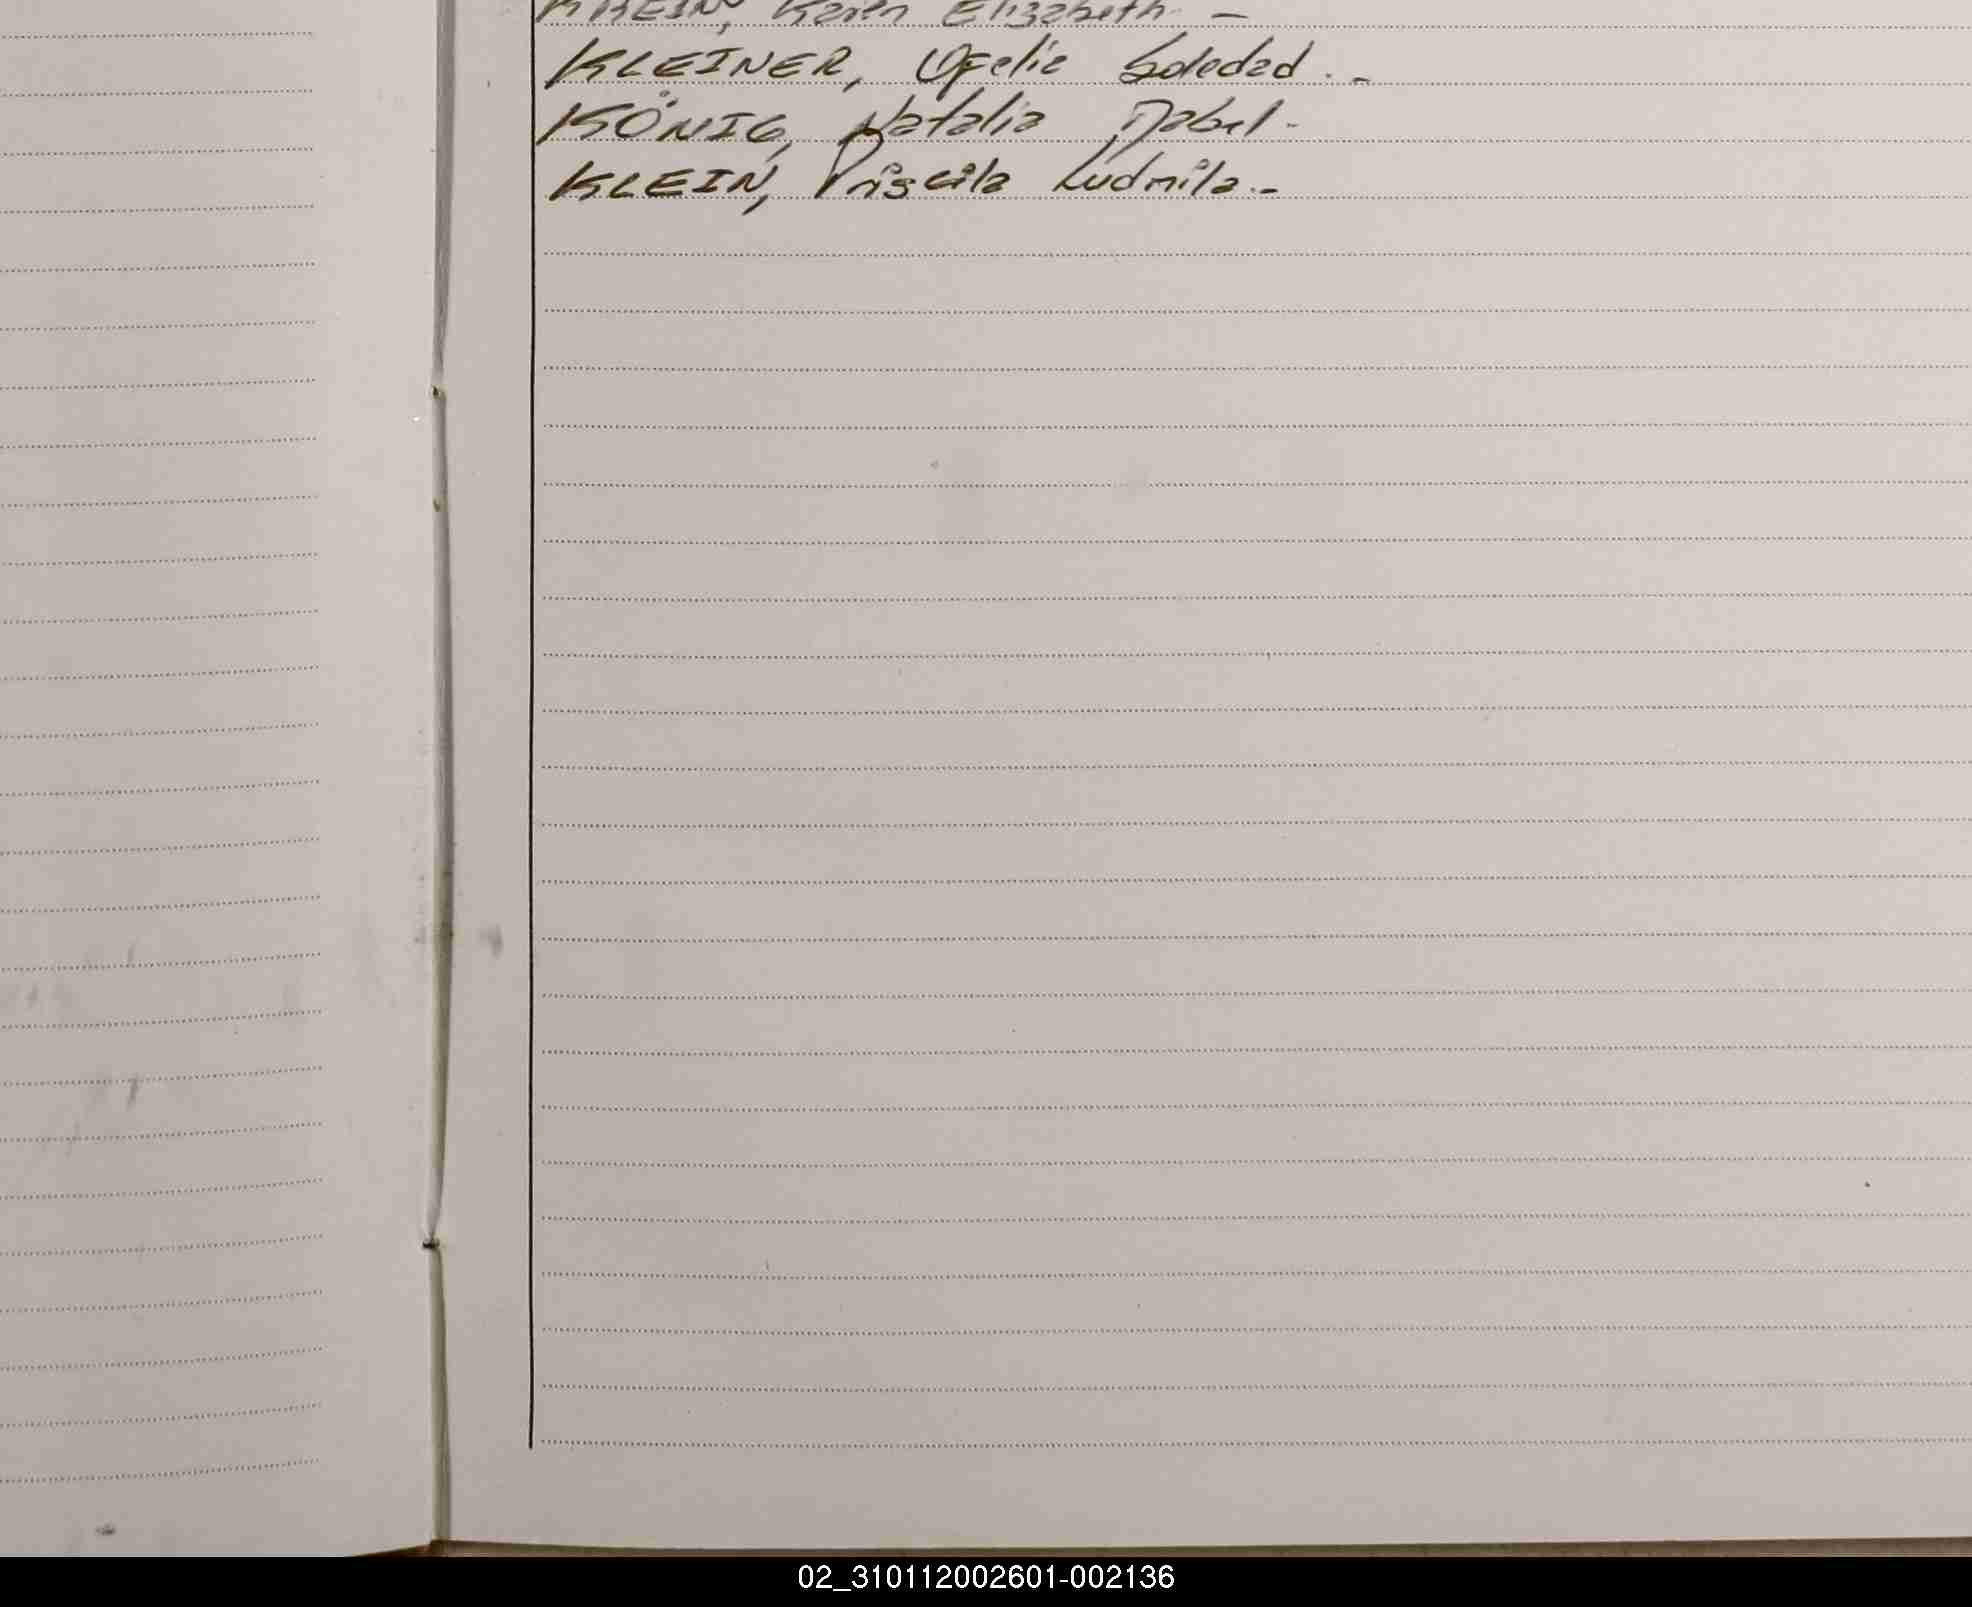 Karen Elizabeth. -
KLEINER, Ofelia Soledad. -
KÖNIG, Natalia Mabel. -
KLEIN, Priscila Ludmila. -
02_310112002601-002136